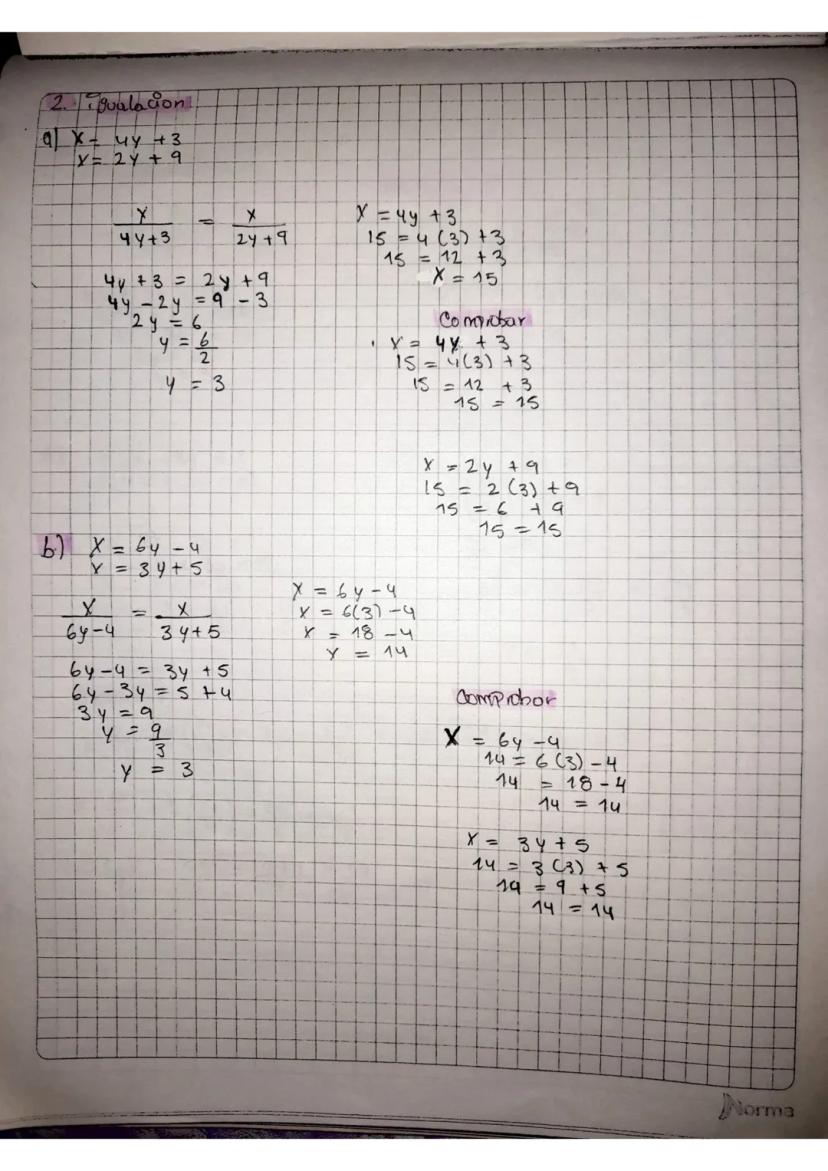 2. igualacion
a) x = 4y + 3
x = 2y + 9
x/4y+3 = x/2y+9
4y + 3 = 2y + 9
4y - 2y = 9 - 3
2y = 6
y = 6/2
y = 3
x = 4y + 3
15 = 4 (3) + 3
15 = 12 + 3
x = 15
Comprobar
x = 4y + 3
15 = 4(3) + 3
15 = 12 + 3
15 = 15
x = 2y + 9
15 = 2 (3) + 9
15 = 6 + 9
15 = 15
b) x = 6y - 4
x = 3y + 5
x/6y-4 = x/3y+5
6y - 4 = 3y + 5
6y - 3y = 5 + 4
3y = 9
y = 9/3
y = 3
x = 6y - 4
x = 6(3) - 4
x = 18 - 4
x = 14
Comprobar
x = 6y - 4
14 = 6(3) - 4
14 = 18 - 4
14 = 14
x = 3y + 5
14 = 3 (3) + 5
14 = 9 + 5
14 = 14
Norma